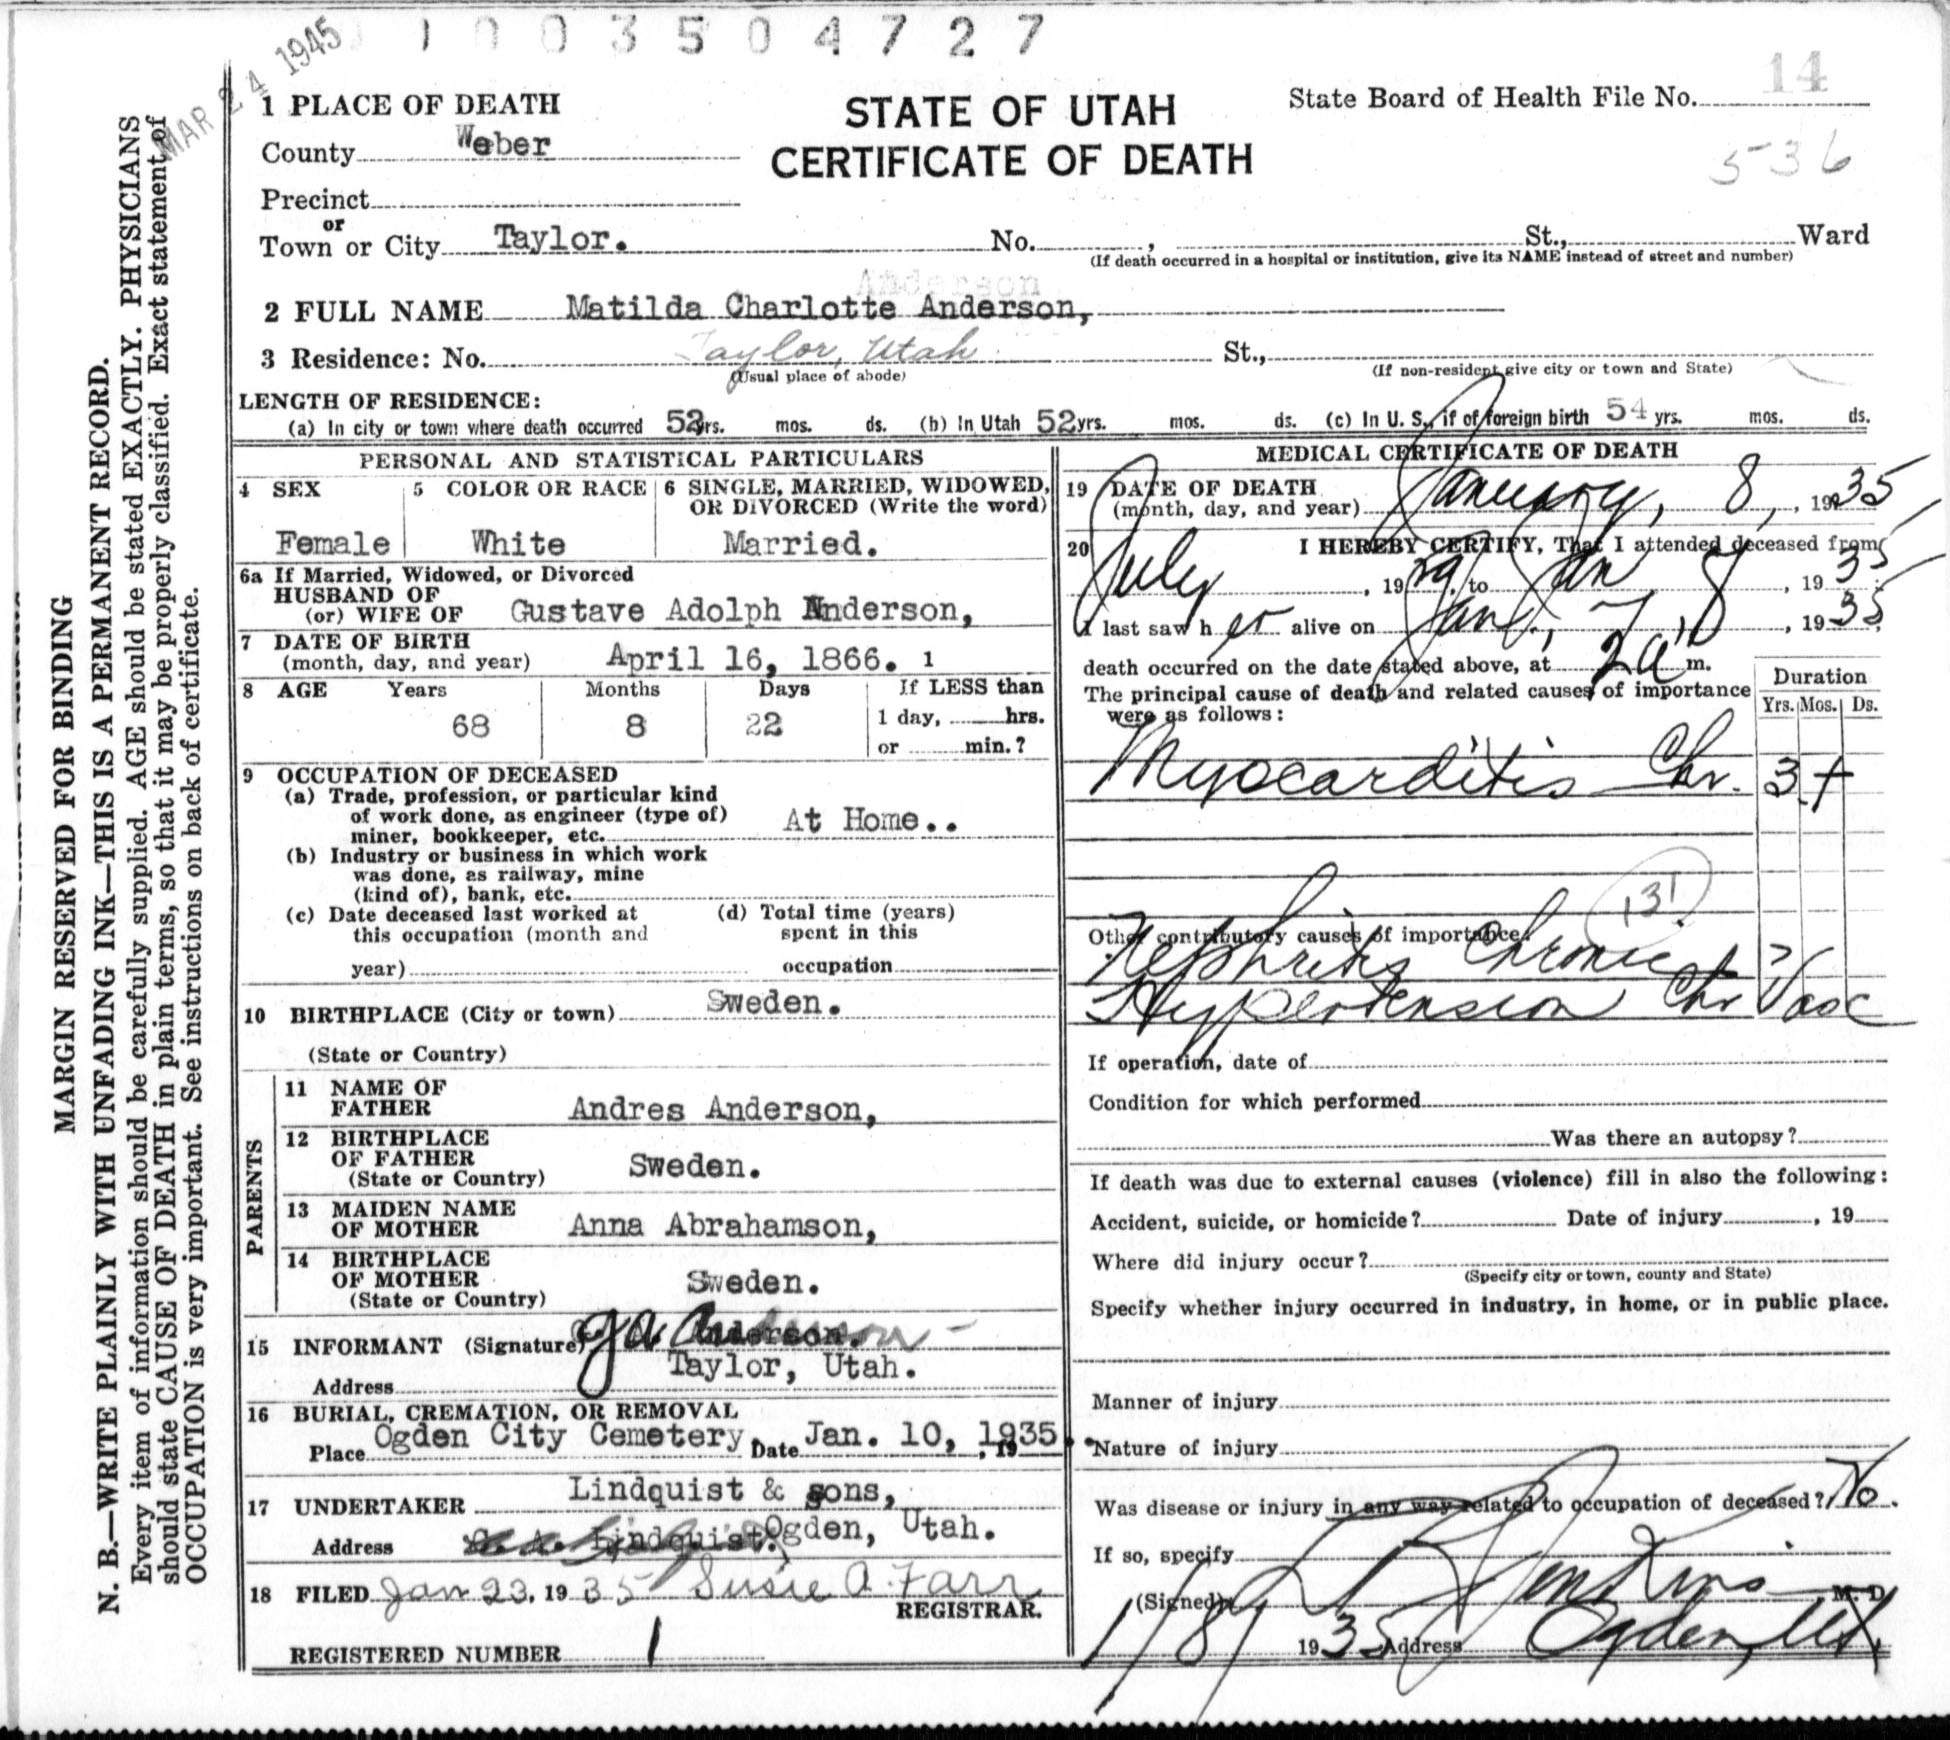 1003504727
MAR 24 1945
MARGIN RESERVED FOR BINDING
N. B.—WRITE PLAINLY WITH UNFADING INK—THIS IS A PERMANENT RECORD.
Every item of information should be carefully supplied. AGE should be stated EXACTLY. PHYSICIANS
should state CAUSE OF DEATH in plain terms, so that it may be properly classified. Exact statement of
OCCUPATION is very important. See instructions on back of certificate.
STATE OF UTAH
CERTIFICATE OF DEATH
State Board of Health File No. 14
536
1 PLACE OF DEATH
County Weber
Precinct
or
Town or City Taylor. No. , St., Ward
(If death occurred in a hospital or institution, give its NAME instead of street and number)
Anderson
2 FULL NAME Matilda Charlotte Anderson,
3 Residence: No. Taylor, Utah St.,
(Usual place of abode) (If non-resident give city or town and State)
LENGTH OF RESIDENCE:
(a) In city or town where death occurred 52 yrs. mos. ds. (b) In Utah 52 yrs. mos. ds. (c) In U. S., if of foreign birth 54 yrs. mos. ds.
PERSONAL AND STATISTICAL PARTICULARS
4 SEX
Female
5 COLOR OR RACE
White
6 SINGLE, MARRIED, WIDOWED,
OR DIVORCED (Write the word)
Married.
6a If Married, Widowed, or Divorced
HUSBAND OF
(or) WIFE OF Gustave Adolph Anderson,
7 DATE OF BIRTH
(month, day, and year) April 16, 1866. 1
8 AGE Years Months Days If LESS than
68 8 22 1 day, hrs.
or min.?
9 OCCUPATION OF DECEASED
(a) Trade, profession, or particular kind
of work done, as engineer (type of)
miner, bookkeeper, etc. At Home..
(b) Industry or business in which work
was done, as railway, mine
(kind of), bank, etc.
(c) Date deceased last worked at
this occupation (month and
year)
(d) Total time (years)
spent in this
occupation
10 BIRTHPLACE (City or town) Sweden.
(State or Country)
PARENTS
11 NAME OF
FATHER Andres Anderson,
12 BIRTHPLACE
OF FATHER
(State or Country) Sweden.
13 MAIDEN NAME
OF MOTHER Anna Abrahamson,
14 BIRTHPLACE
OF MOTHER
(State or Country) Sweden.
15 INFORMANT (Signature) G A Anderson
Address Taylor, Utah.
16 BURIAL, CREMATION, OR REMOVAL
Place Ogden City Cemetery. Date Jan. 10, 1935.
17 UNDERTAKER Lindquist & sons,
Address Lindquist. Ogden, Utah.
18 FILED Jan 23, 1935 Susie A. Farr
REGISTRAR.
REGISTERED NUMBER 1
MEDICAL CERTIFICATE OF DEATH
19 DATE OF DEATH
(month, day, and year) January, 8, , 1935
20 I HEREBY CERTIFY, That I attended deceased from
July , 1929, to Jan 8 , 1935
I last saw h er alive on Jan. 7, , 1935
death occurred on the date stated above, at 2 a m.
The principal cause of death and related causes of importance
were as follows:
Duration
Yrs. Mos. Ds.
Myocarditis Chr. 3 +
131
Other contributory causes of importance
Nephritis Chronic ?
Hypertension Chr Vasc
If operation, date of
Condition for which performed
Was there an autopsy?
If death was due to external causes (violence) fill in also the following:
Accident, suicide, or homicide? Date of injury , 19
Where did injury occur?
(Specify city or town, county and State)
Specify whether injury occurred in industry, in home, or in public place.
Manner of injury
Nature of injury
Was disease or injury in any way related to occupation of deceased? No.
If so, specify
(Signed) Jenkins M. D.
1/8/ 1935 Address Ogden, Ut.